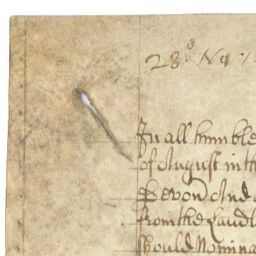 28° No
In all humble
of August in th
Beyond And
from the Landl
should Nomina